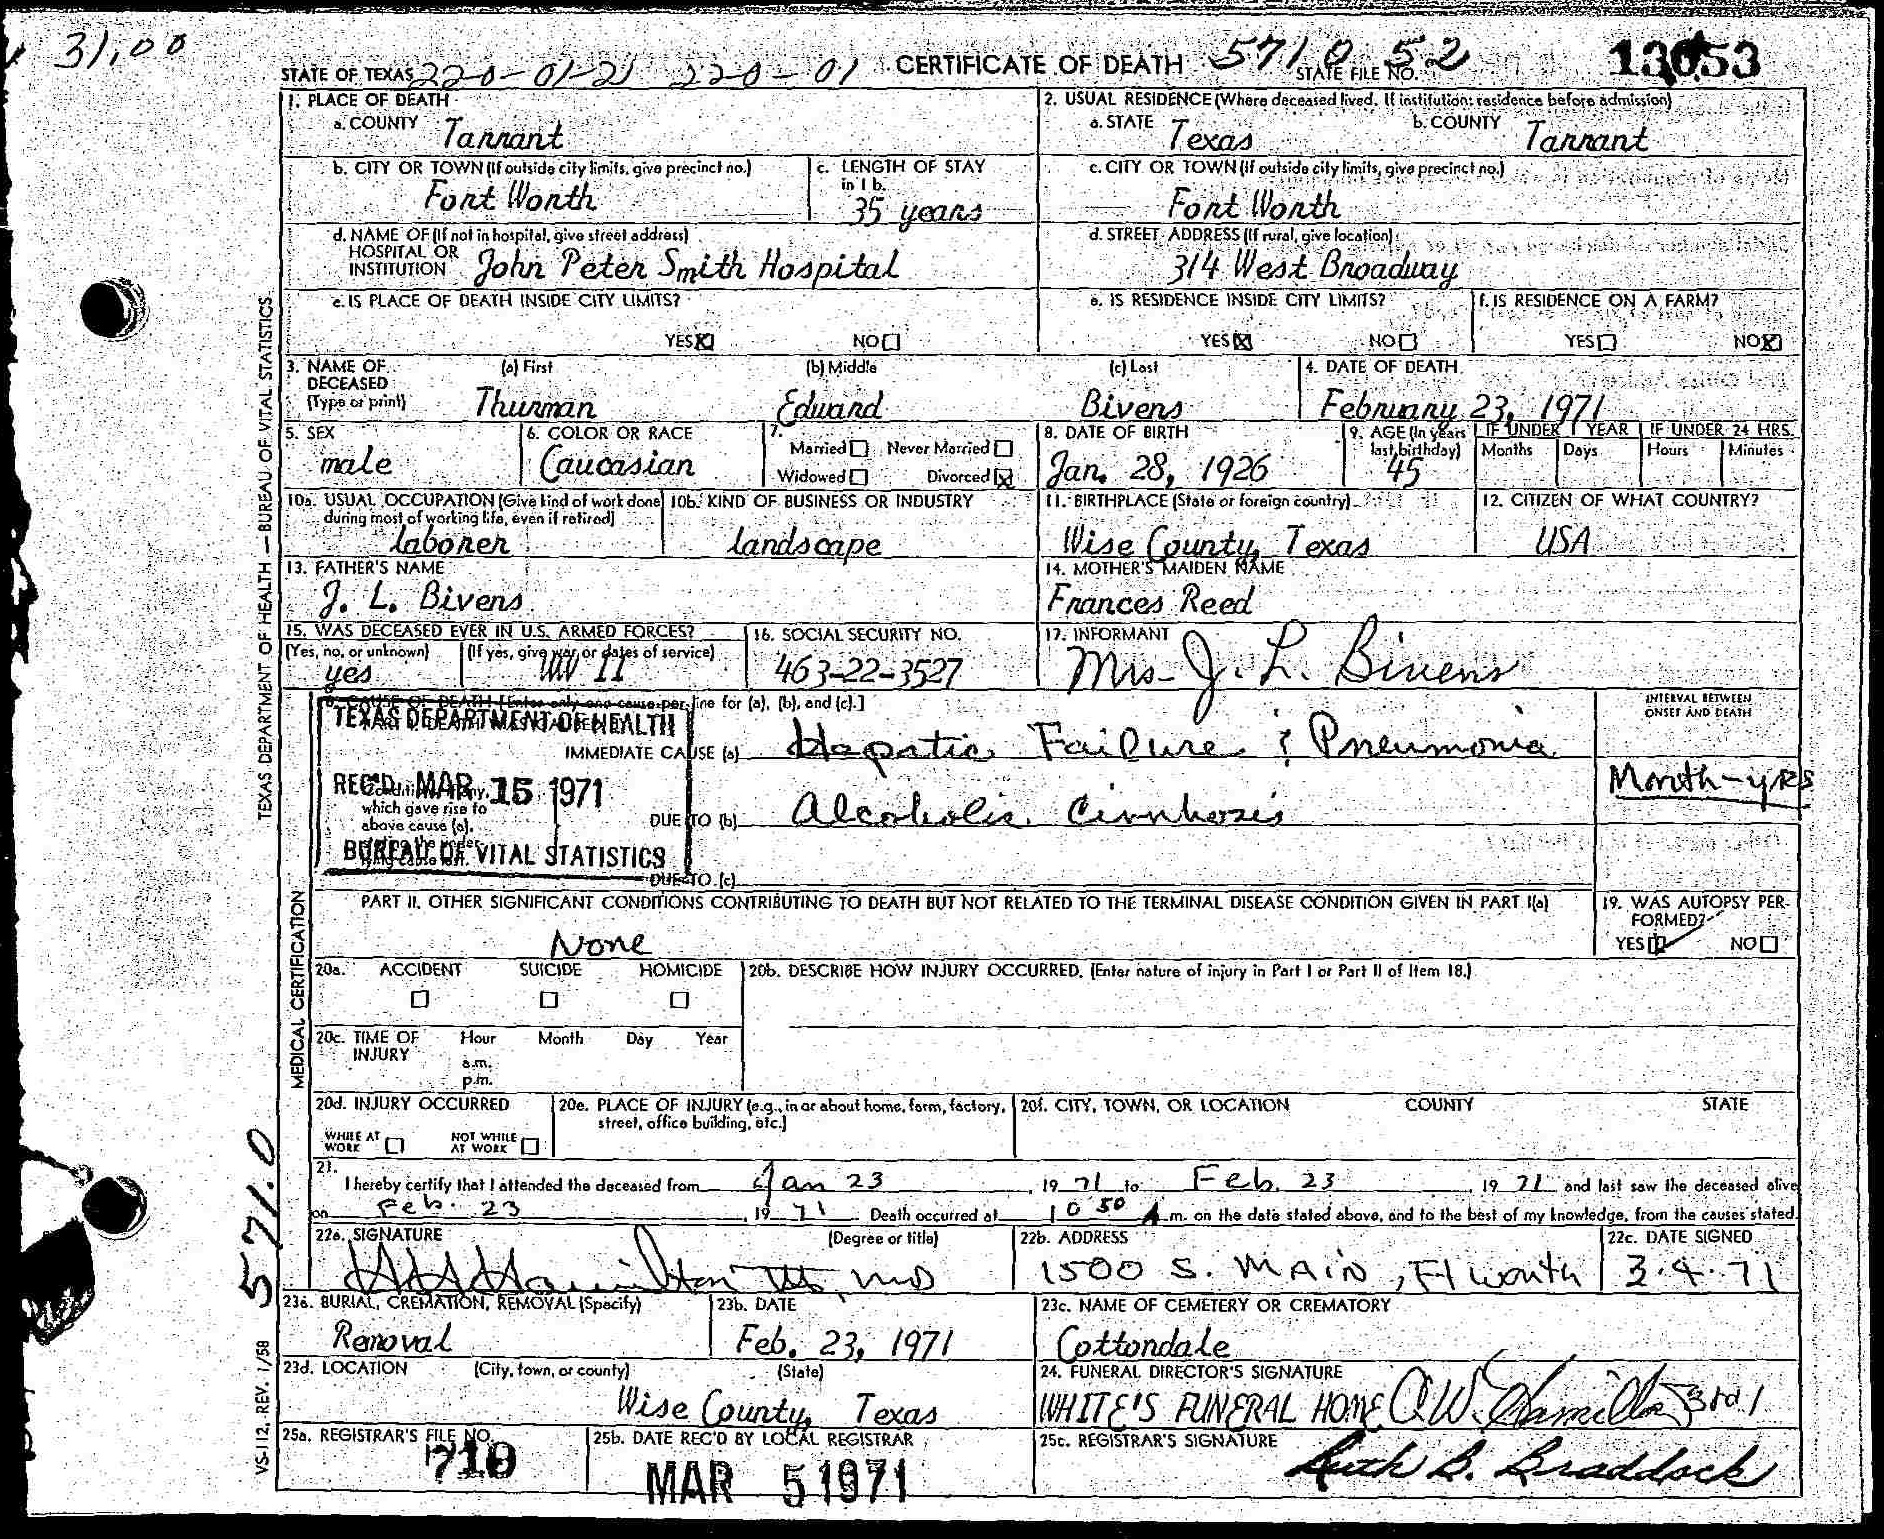 31,00
STATE OF TEXAS 220-01-21 220-01 CERTIFICATE OF DEATH 5710 52 STATE FILE NO. 13053
1. PLACE OF DEATH
a. COUNTY Tarrant
2. USUAL RESIDENCE (Where deceased lived. If institution: residence before admission)
a. STATE Texas b. COUNTY Tarrant
b. CITY OR TOWN (If outside city limits, give precinct no.)
Fort Worth
c. LENGTH OF STAY in 1 b.
35 years
c. CITY OR TOWN (If outside city limits, give precinct no.)
Fort Worth
d. NAME OF (If not in hospital, give street address)
HOSPITAL OR
INSTITUTION John Peter Smith Hospital
d. STREET ADDRESS (If rural, give location)
314 West Broadway
e. IS PLACE OF DEATH INSIDE CITY LIMITS?
YES NO
e. IS RESIDENCE INSIDE CITY LIMITS?
YES NO
f. IS RESIDENCE ON A FARM?
YES NO
3. NAME OF DECEASED (Type or print)
(a) First (b) Middle (c) Last
Thurman Edward Bivens
4. DATE OF DEATH
February 23, 1971
5. SEX
male
6. COLOR OR RACE
Caucasian
7. Married Never Married
Widowed Divorced
8. DATE OF BIRTH
Jan. 28, 1926
9. AGE (In years last birthday)
45
IF UNDER 1 YEAR IF UNDER 24 HRS.
Months Days Hours Minutes
10a. USUAL OCCUPATION (Give kind of work done during most of working life, even if retired)
laborer
10b. KIND OF BUSINESS OR INDUSTRY
landscape
11. BIRTHPLACE (State or foreign country)
Wise County, Texas
12. CITIZEN OF WHAT COUNTRY?
USA
13. FATHER'S NAME
J. L. Bivens
14. MOTHER'S MAIDEN NAME
Frances Reed
15. WAS DECEASED EVER IN U.S. ARMED FORCES?
(Yes, no, or unknown) (If yes, give war or dates of service)
yes WW II
16. SOCIAL SECURITY NO.
463-22-3527
17. INFORMANT
Mrs. J. L. Bivens
CAUSE OF DEATH [Enter only one cause per line for (a), (b), and (c).]
TEXAS DEPARTMENT OF HEALTH
REC'D MAR 15 1971
BUREAU OF VITAL STATISTICS
which gave rise to
above cause (a),
INTERVAL BETWEEN
ONSET AND DEATH
IMMEDIATE CAUSE (a) Hepatic Failure & Pneumonia
Month-yrs
DUE TO (b) Alcoholic Cirrhosis
DUE TO (c)
PART II. OTHER SIGNIFICANT CONDITIONS CONTRIBUTING TO DEATH BUT NOT RELATED TO THE TERMINAL DISEASE CONDITION GIVEN IN PART I(a)
None
19. WAS AUTOPSY PERFORMED?
YES NO
20a. ACCIDENT SUICIDE HOMICIDE
20b. DESCRIBE HOW INJURY OCCURRED. (Enter nature of injury in Part I or Part II of Item 18.)
20c. TIME OF INJURY
Hour Month Day Year
a.m.
p.m.
20d. INJURY OCCURRED
WHILE AT WORK NOT WHILE AT WORK
20e. PLACE OF INJURY (e.g., in or about home, farm, factory, street, office building, etc.)
20f. CITY, TOWN, OR LOCATION COUNTY STATE
21.
I hereby certify that I attended the deceased from Jan 23, 1971 to Feb. 23, 1971 and last saw the deceased alive
on Feb. 23, 1971 Death occurred at 10 50 A.m. on the date stated above, and to the best of my knowledge, from the causes stated.
22a. SIGNATURE (Degree or title)
Hamilton III, MD
22b. ADDRESS
1500 S. MAIN, Ft Worth
22c. DATE SIGNED
3.4.71
23a. BURIAL, CREMATION, REMOVAL (Specify)
Removal
23b. DATE
Feb. 23, 1971
23c. NAME OF CEMETERY OR CREMATORY
Cottondale
23d. LOCATION (City, town, or county) (State)
Wise County, Texas
24. FUNERAL DIRECTOR'S SIGNATURE
WHITE'S FUNERAL HOME
25a. REGISTRAR'S FILE NO.
710
25b. DATE REC'D BY LOCAL REGISTRAR
MAR 5 1971
25c. REGISTRAR'S SIGNATURE
Ruth B. Braddock
TEXAS DEPARTMENT OF HEALTH — BUREAU OF VITAL STATISTICS
MEDICAL CERTIFICATION
571.0
VS-112, REV. 1/58